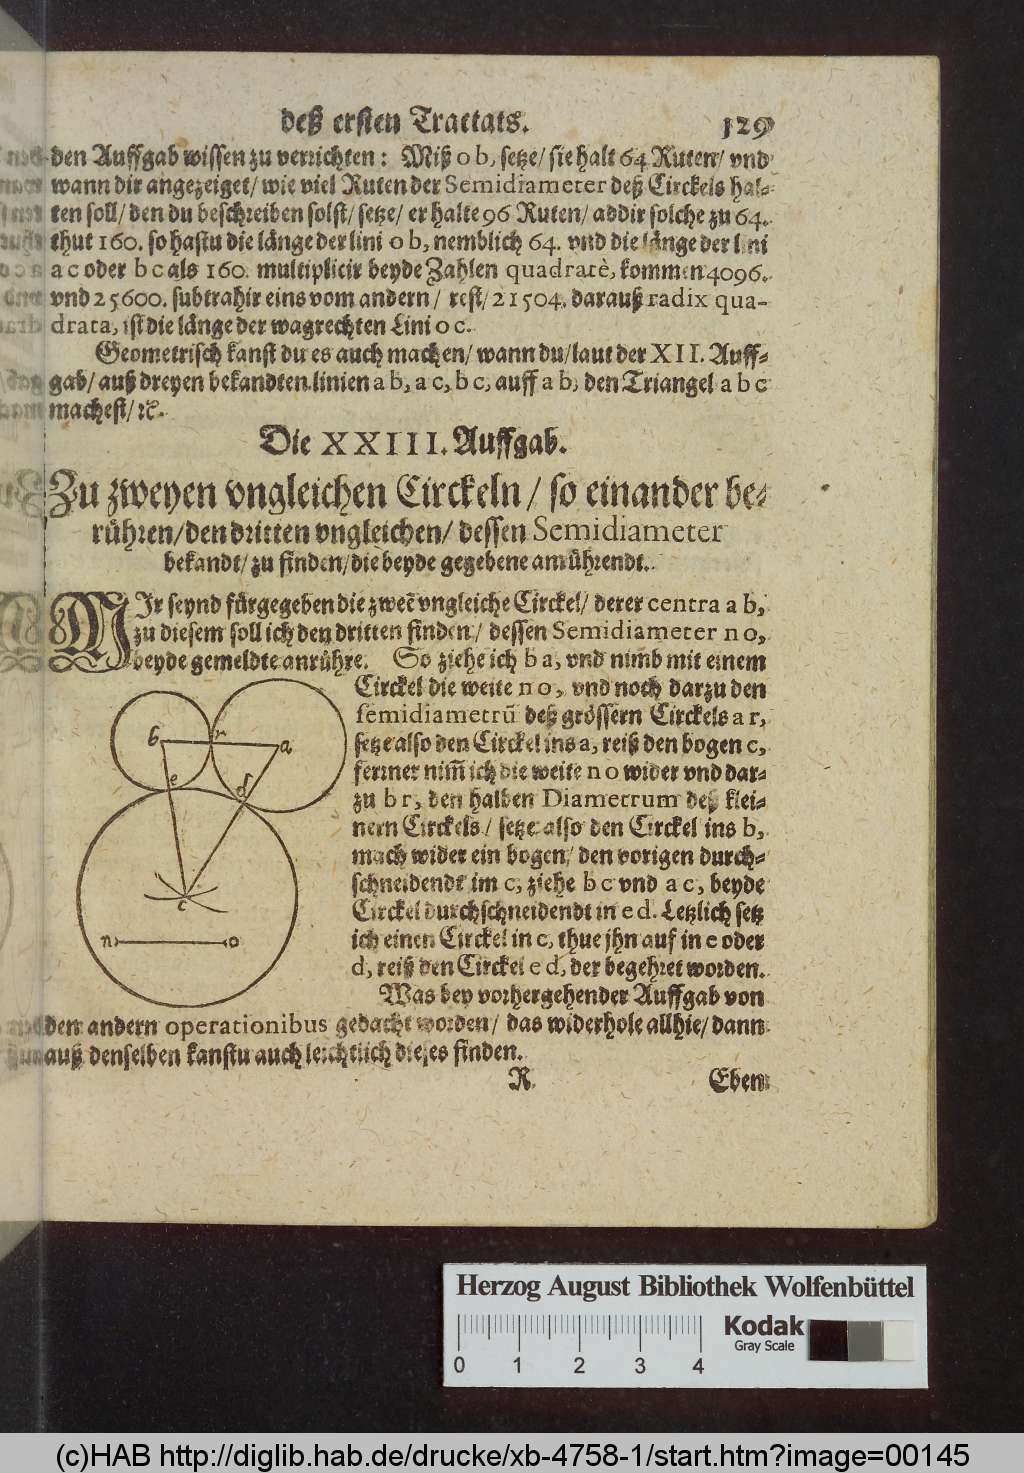 deß ersten Tractats. 129
den Auffgab wissen zu verrichten: Miß o b, setze/ sie halt 64 Ruten/ vnd
wann dir angezeiget/ wie viel Ruten der Semidiameter deß Circkels hal-
ten soll/ den du beschreiben solst/ setze/ er halte 96 Ruten/ addir solche zu 64.
thut 160. so hastu die länge der lini o b, nemblich 64. vnd die länge der lini
a c oder b c als 160. multiplicir beyde Zahlen quadratè, kommen 4096.
vnd 25600. subtrahir eins vom andern/ rest/ 21504. darauß radix qua-
drata, ist die länge der wagrechten Lini o c.
Geometrisch kanst du es auch machen/ wann du/ laut der XII. Auff-
gab/ auß dreyen bekandten linien a b, a c, b c, auff a b, den Triangel a b c
machest/ ꝛc.
Die XXIII. Auffgab.
Zu zweyen vngleichen Circkeln/ so einander be-
rühren/ den dritten vngleichen/ dessen Semidiameter
bekandt/ zu finden/ die beyde gegebene anrührendt.
MIr seynd fürgegeben die zweẽ vngleiche Circkel/ derer centra a b,
zu diesem soll ich den dritten finden/ dessen Semidiameter n o,
beyde gemeldte anrühre. So ziehe ich b a, vnd nimb mit einem
Circkel die weite n o, vnd noch darzu den
semidiametrũ deß grössern Circkels a r,
setze also den Circkel ins a, reiß den bogen c,
ferrner nim̃ ich die weite n o wider vnd dar-
zu b r, den halben Diametrum deß klei-
nern Circkels/ setze also den Circkel ins b,
mach wider ein bogen/ den vorigen durch-
schneidendt im c, ziehe b c vnd a c, beyde
Circkel durchschneidendt in e d. Letzlich setz
ich einen Circkel in c, thue jhn auf in e oder
d, reiß den Circkel e d, der begehret worden.
b r a
e d
c
n o
Was bey vorhergehender Auffgab von
den andern operationibus gedacht worden/ das widerhole allhie/ dann
auß denselben kanstu auch leichtlich dieses finden.
R Eben
Herzog August Bibliothek Wolfenbüttel
Kodak
Gray Scale
0 1 2 3 4
(c)HAB http://diglib.hab.de/drucke/xb-4758-1/start.htm?image=00145